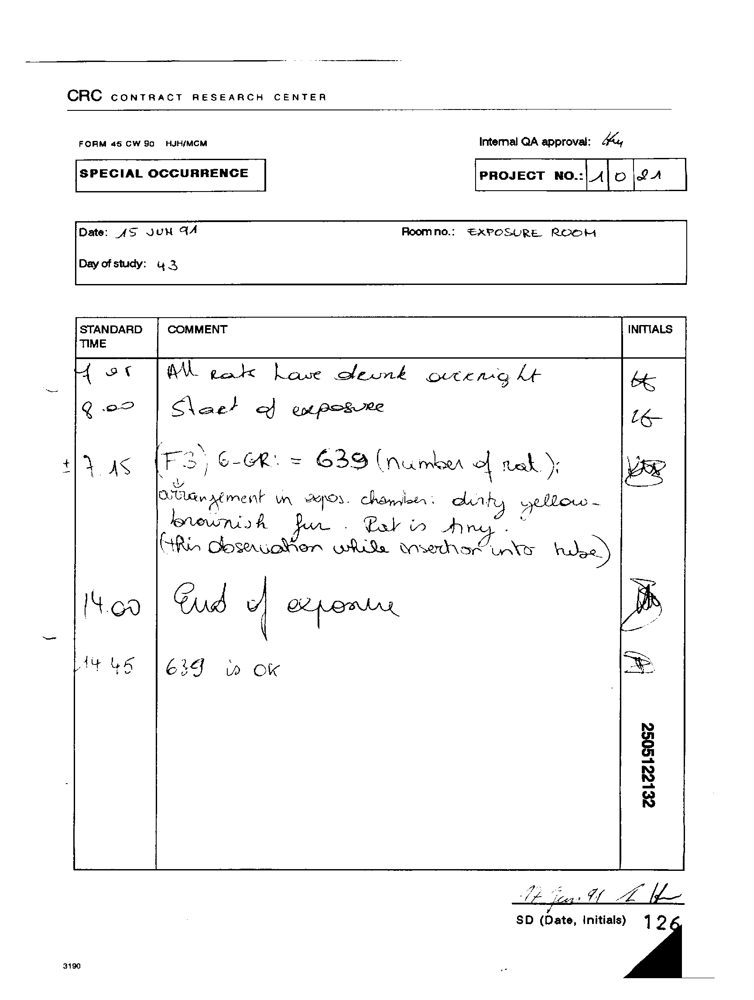 CRC CONTRACT RESEARCH CENTER
FORM 45 CW 90 HJH/MCM
Internal QA approval:
SPECIAL OCCURRENCE
PROJECT NO.: 1 0 21
Date: 15 JUN 91
Room no.: EXPOSURE ROOM
Day of study: 43
STANDARD TIME
COMMENT
INITIALS
All rats have drunk overnight
8.00 Start of exposure
± 7.15 (F3), 6-GR: = 639 (number of rat):
arrangement in expos. chamber: dirty yellow-
brownish fur. Rat is tiny.
(this observation while insertion into tube)
14.00 End of exposure
14 45 639 is OK
2505122132
17 Jun. 91
SD (Date, Initials) 126
3190